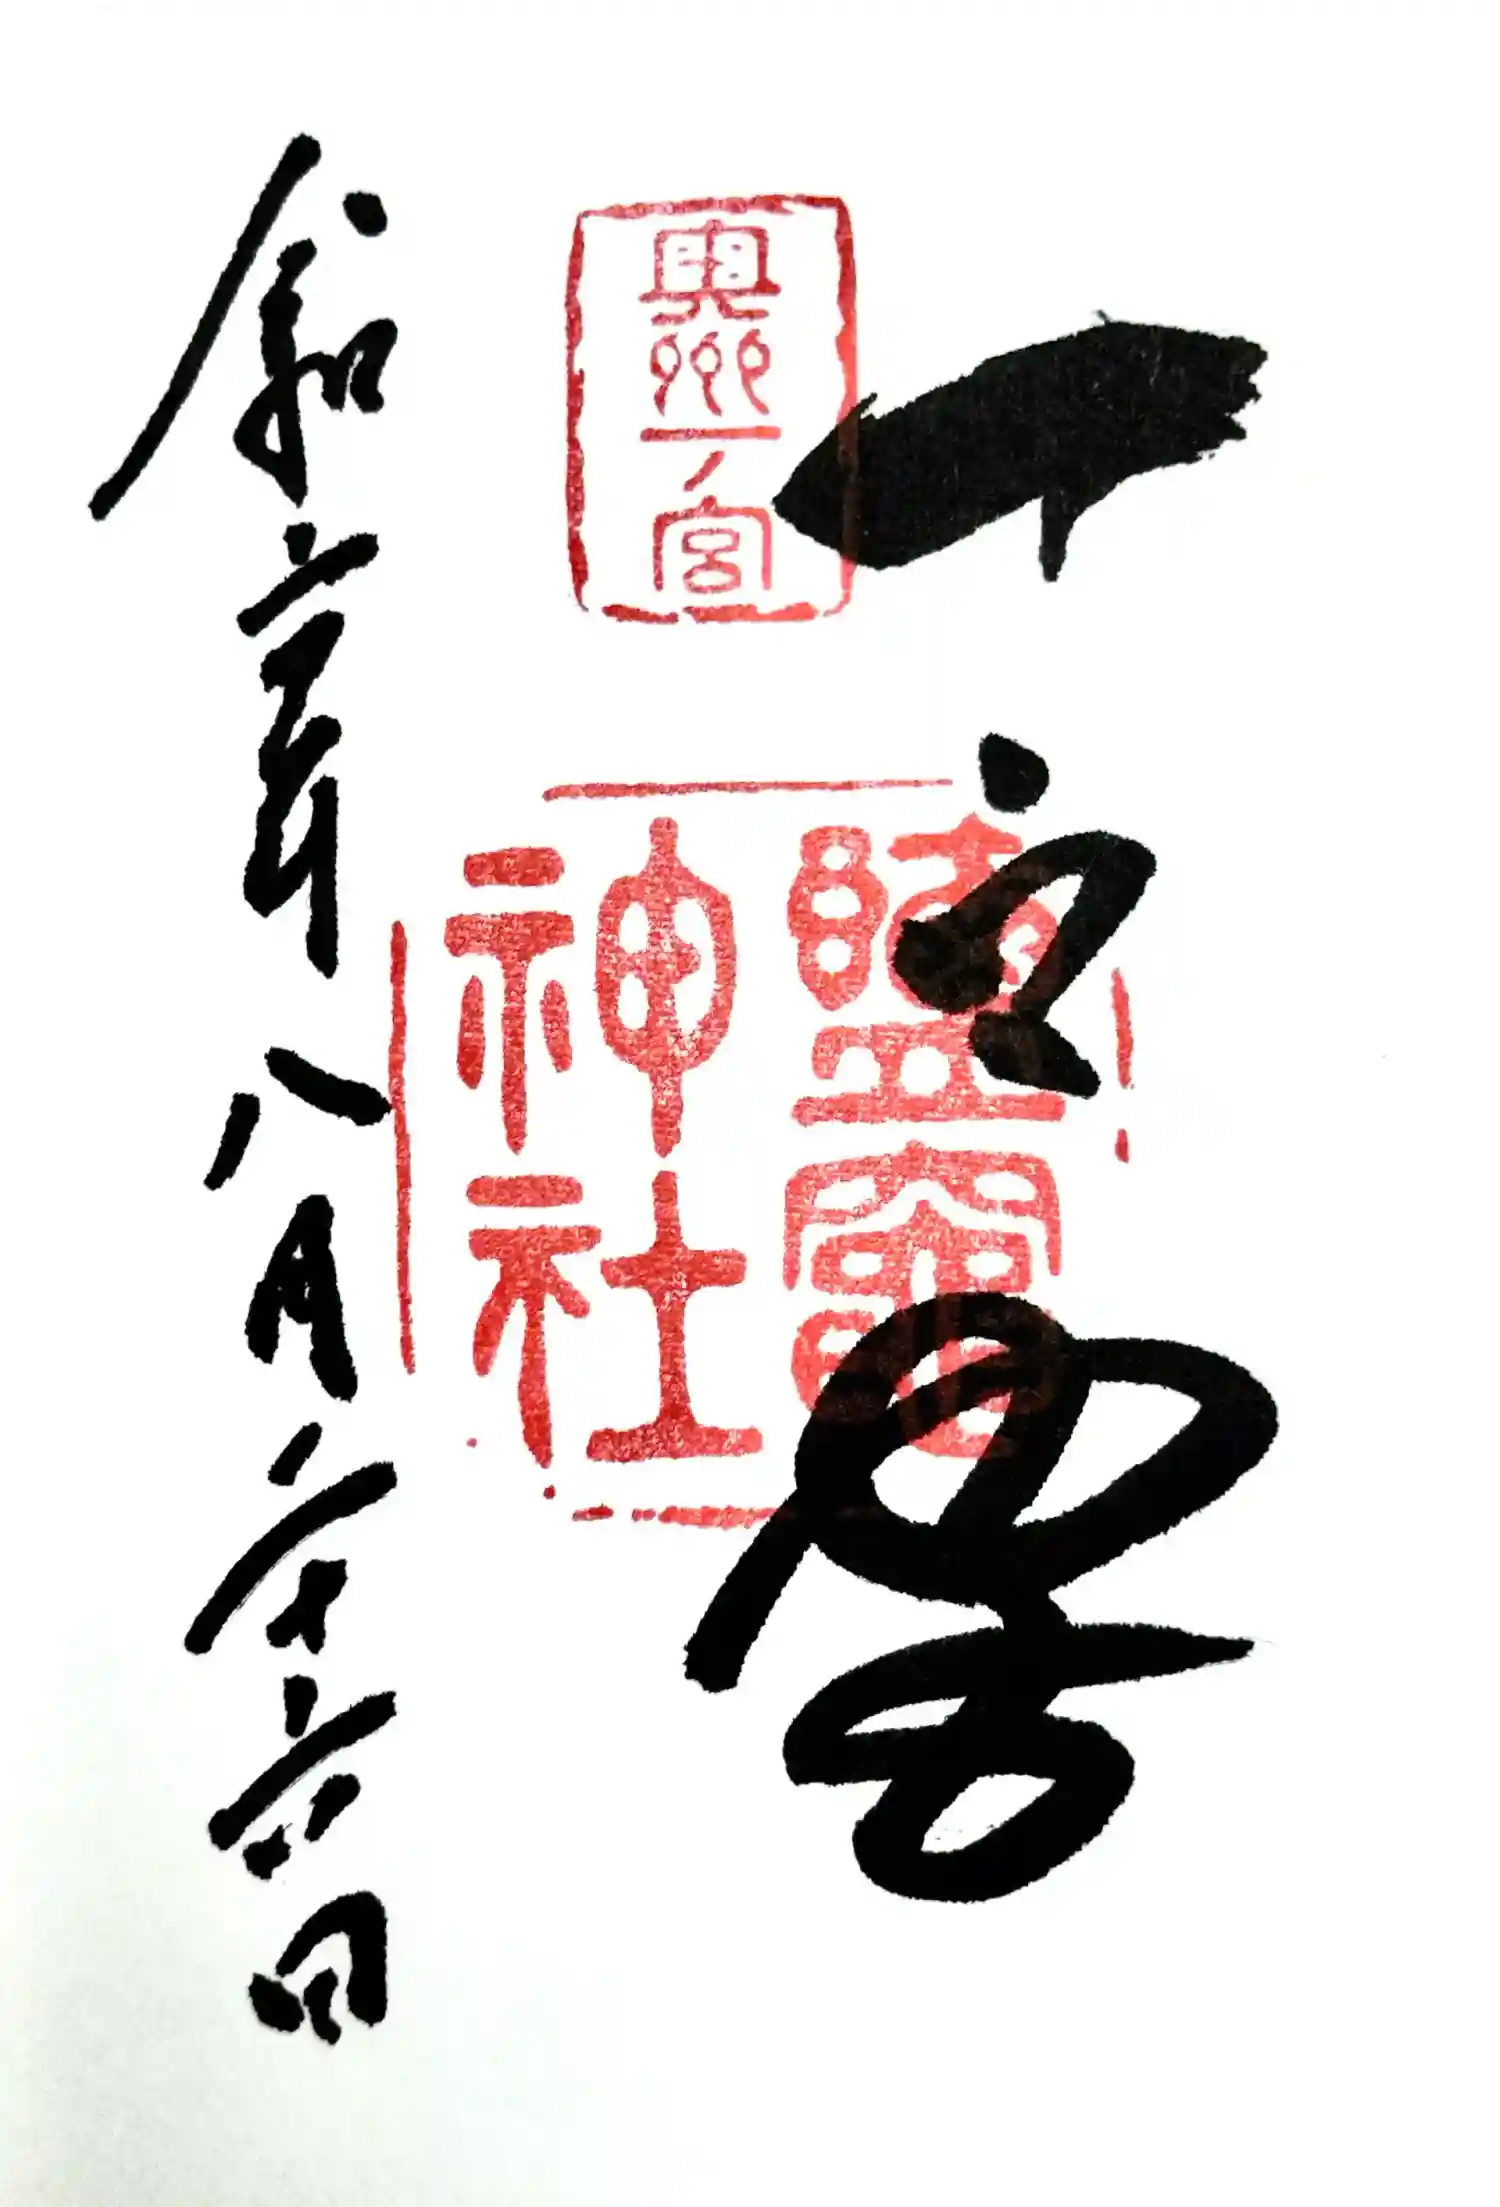 一之宮
奥州一ノ宮
鹽竈
神社
令和六年八月二十六日